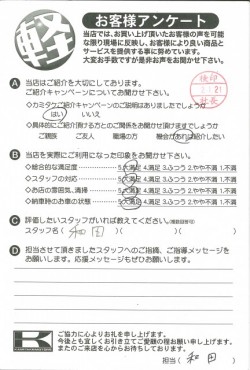 軽
お客様アンケート
当店では、お買い上げ頂いたお客様の声を可能
な限り現場に反映し、お客様により良い商品と
サービスを提供する事に努めています。
大変お手数ですが是非お声をお聞かせ下さい。
A 当店はご紹介を大切にしております。
ご紹介キャンペーンについてお聞かせ下さい。
◇カミタケご紹介キャンペーンのご説明はありましたでしょうか
はい いいえ
◇具体的にご紹介頂ける方とのご関係をお聞かせ頂けますでしょうか
ご親族 ご友人 職場の方 機会があれば紹介したい
検印
21
B 当店を実際にご利用になった印象をお聞かせ下さい。
◇総合的な満足度 5.大満足 4.満足 3.ふつう 2.やや不満 1.不満
◇スタッフの対応 5.大満足 4.満足 3.ふつう 2.やや不満 1.不満
◇お店の雰囲気、清掃 5.大満足 4.満足 3.ふつう 2.やや不満 1.不満
◇納車時のお車の状態 5.大満足 4.満足 3.ふつう 2.やや不満 1.不満
C 評価したいスタッフがいれば教えてください。(複数回答可)
スタッフ名( 和田 )( )( )
D 担当させて頂きましたスタッフへのご指摘、ご指導メッセージを
お願いします。応援メッセージもぜひお願いします。
K
ご協力に心よりお礼を申し上げます。
今後とも宜しくお引き立てご愛顧の程お願い申し上げます。
またのご来店を心からお待ちしております。
担当( 和田 )